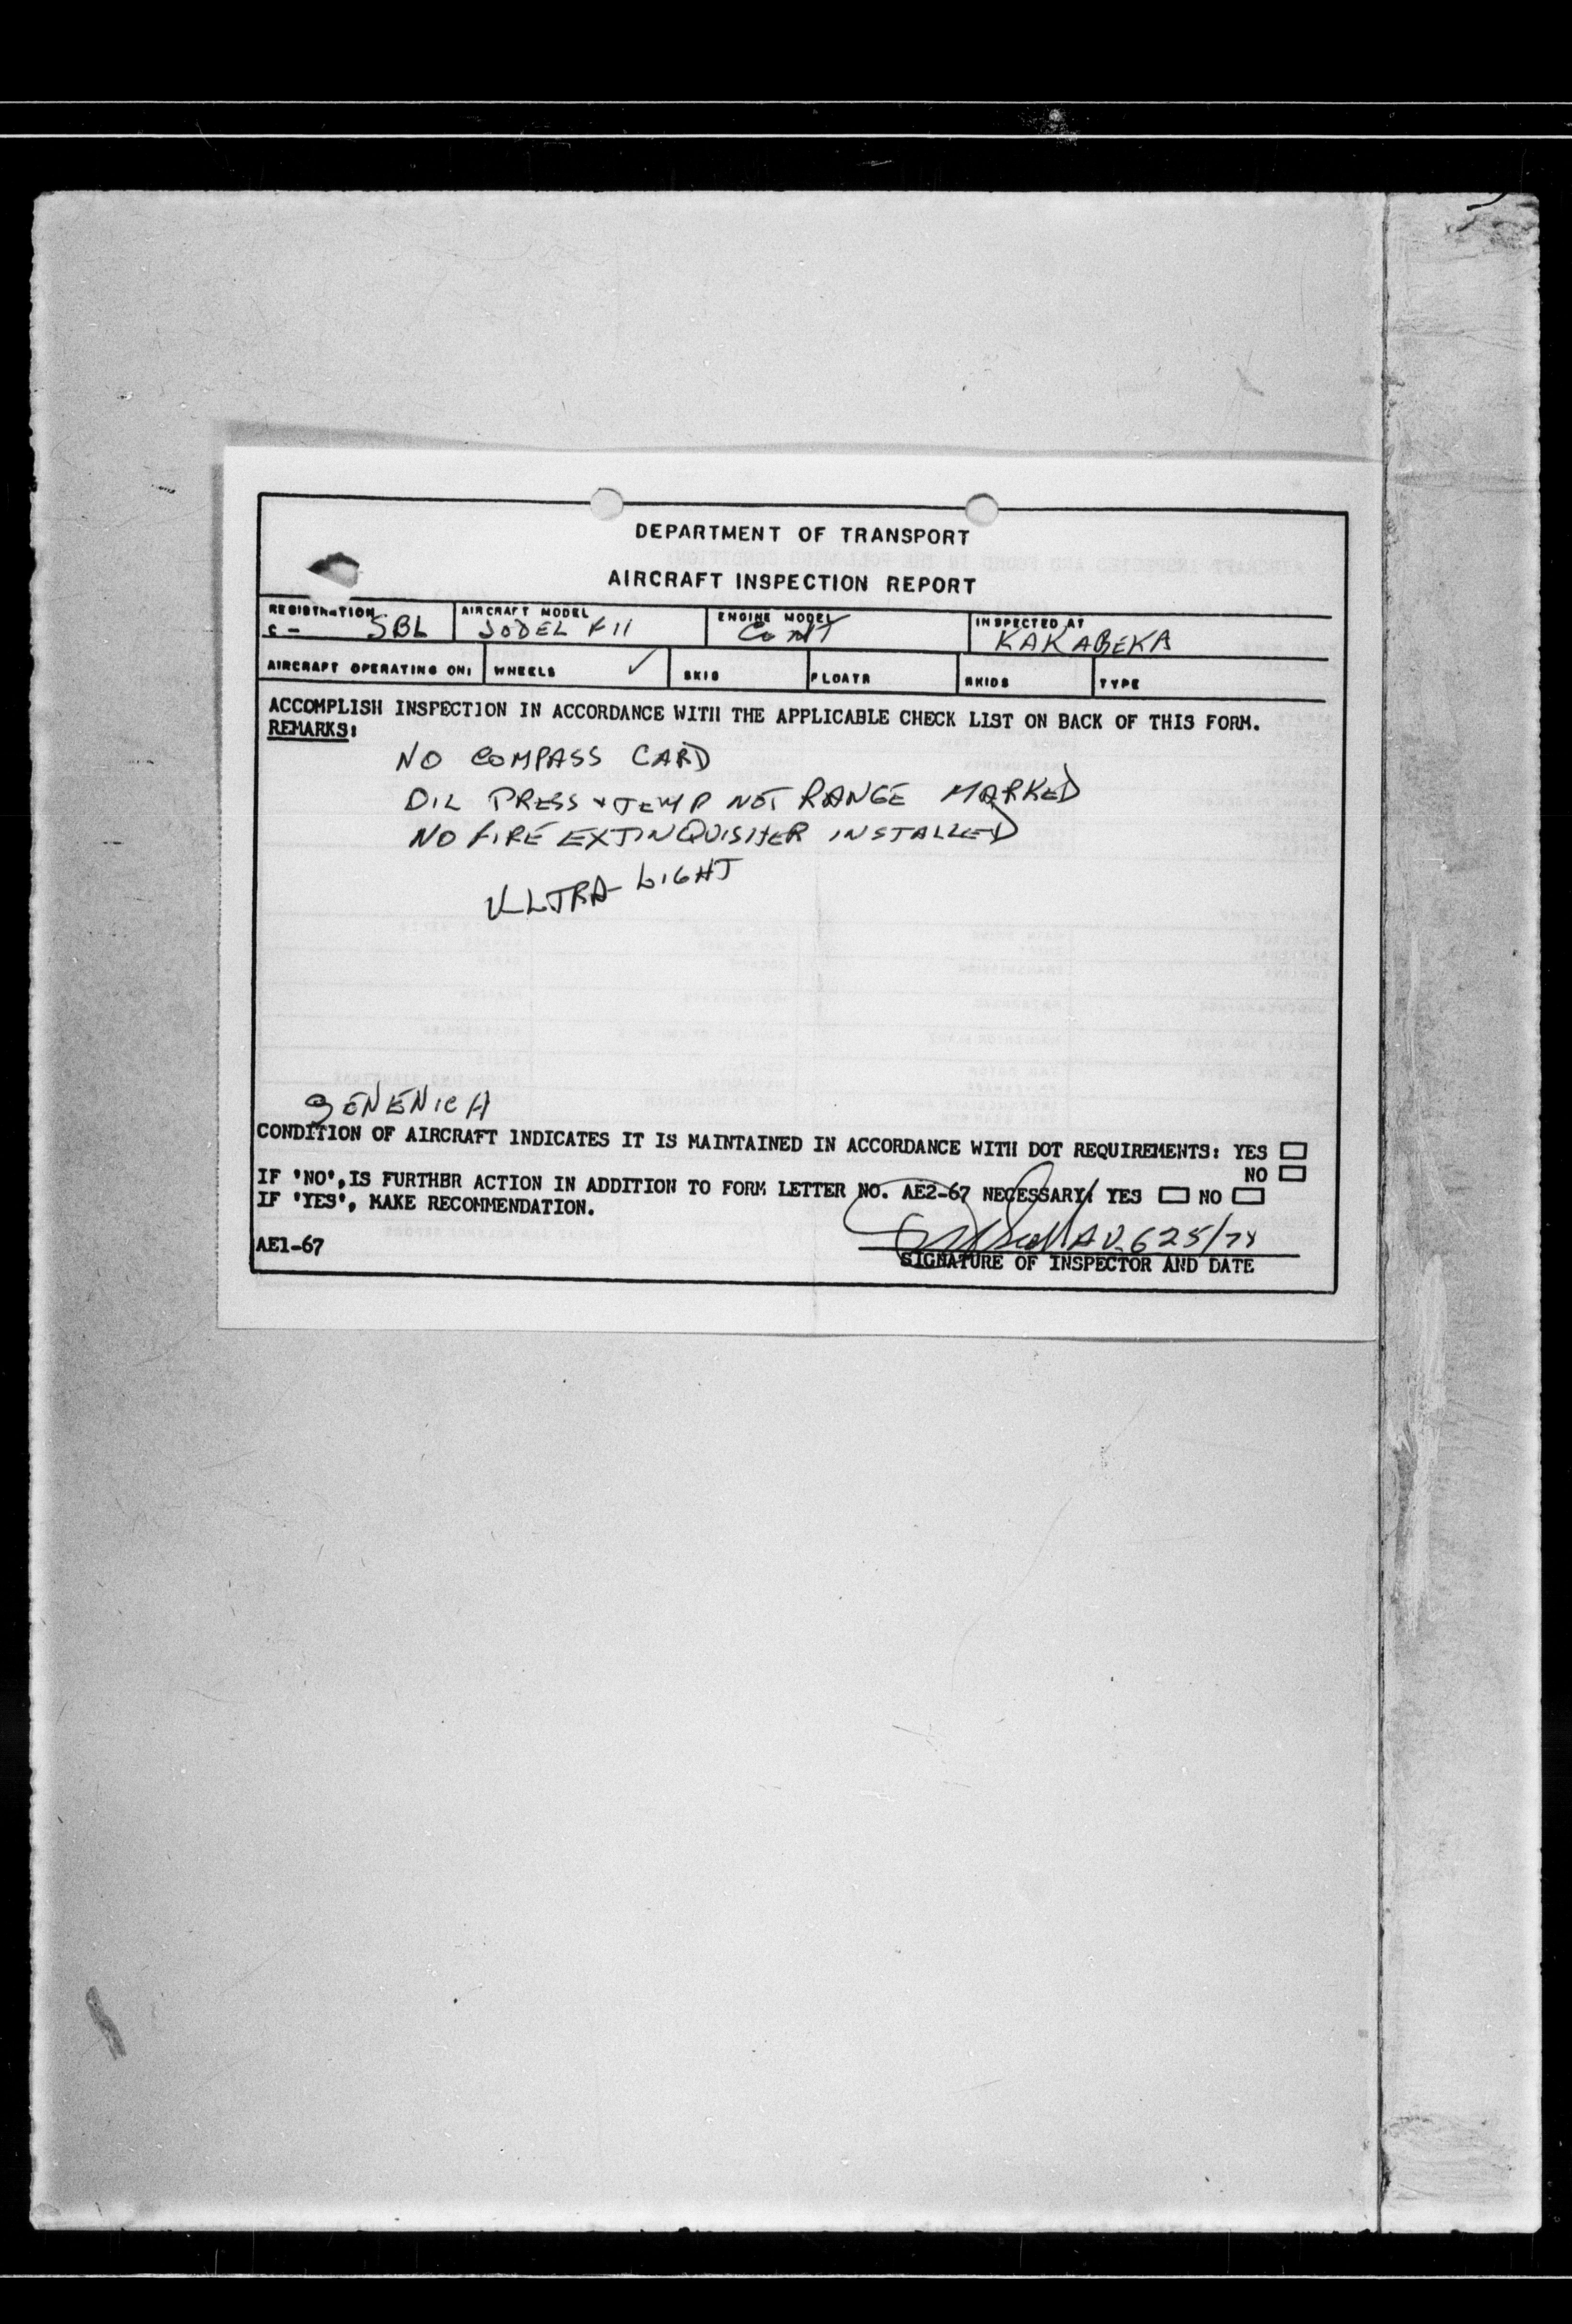 DEPARTMENT OF TRANSPORT
AIRCRAFT INSPECTION REPORT
REGISTRATION AIRCRAFT MODEL ENGINE MODEL INSPECTED AT
C- SBL JODEL F11 CONT KAKABEKA
AIRCRAFT OPERATING ON: WHEELS ✓ SKIS FLOATS SKIDS TYPE
ACCOMPLISH INSPECTION IN ACCORDANCE WITH THE APPLICABLE CHECK LIST ON BACK OF THIS FORM.
REMARKS:
NO COMPASS CARD
OIL PRESS + TEMP NOT RANGE MARKED
NO FIRE EXTINQUISHER INSTALLED
ULTRA-LIGHT
SENENICH
CONDITION OF AIRCRAFT INDICATES IT IS MAINTAINED IN ACCORDANCE WITH DOT REQUIREMENTS: YES
NO
IF 'NO', IS FURTHBR ACTION IN ADDITION TO FORM LETTER NO. AE2-67 NECESSARY: YES NO
IF 'YES', MAKE RECOMMENDATION.
AUG 25/
AE1-67
SIGNATURE OF INSPECTOR AND DATE